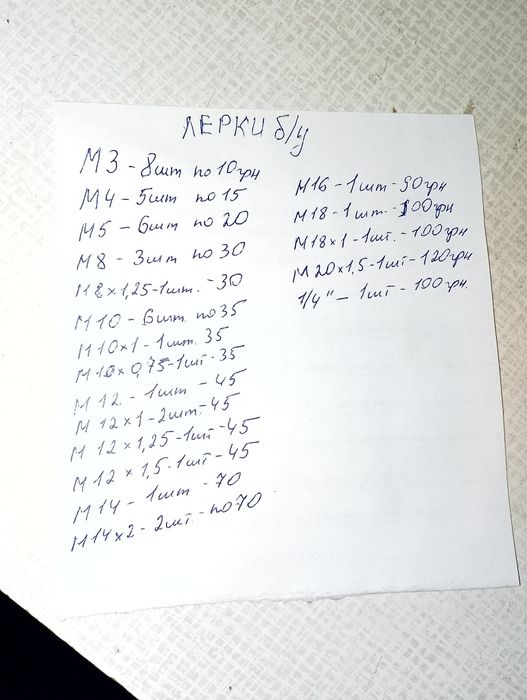 ЛЕРКИ б/у
М3 - 8шт по 10грн
М4 - 5шт по 15
М5 - 6шт по 20
М8 - 3шт по 30
М8х1,25-1шт. -30
М10 - 6шт. по 35
М10х1 - 1шт. 35
М10х0,75-1шт-35
М12. - 1шт - 45
М12х1-2шт.-45
М12х1,25-1шт-45
М12х1,5-1шт-45
М14 - 1шт - 70
М14х2 - 2шт. - по 70
М16 - 1шт - 90грн
М18 - 1шт. - 100грн
М18х1 - 1шт. - 100грн
М20х1,5-1шт-120грн
1/4" - 1шт - 100грн.